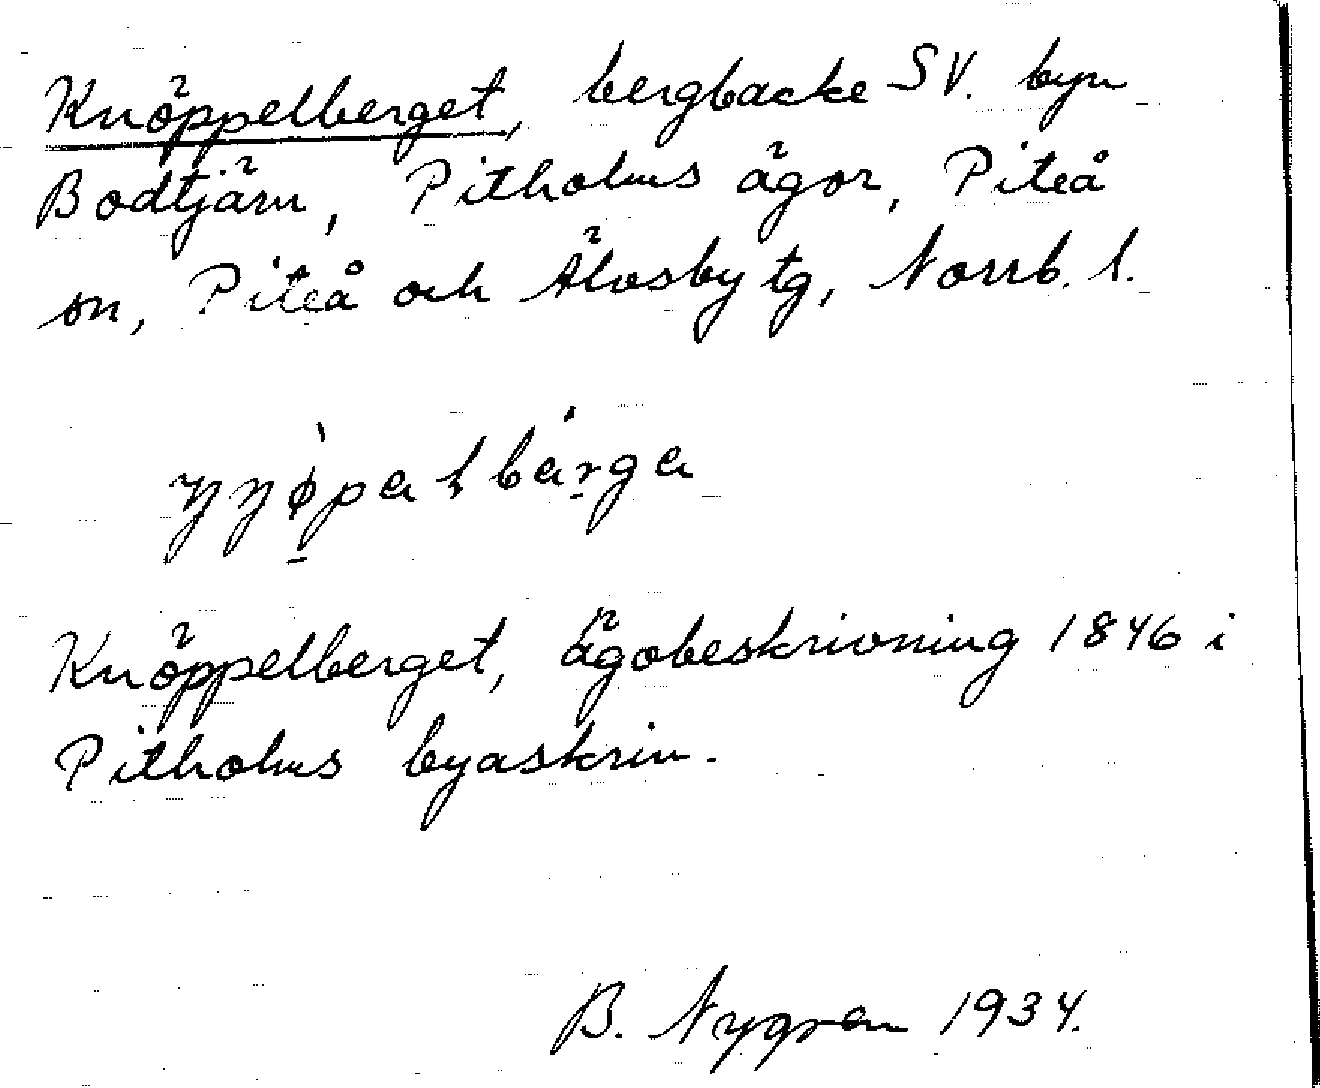 Knöppelberget, bergbacke SV. byn
Bodtjärn, Pitholms ägor, Piteå
sn, Piteå och Älvsby tg, Norrb. l.
Knöppelberget, Ägobeskrivning 1846 i
Pitholms byaskrin.
B. Nygren 1934.